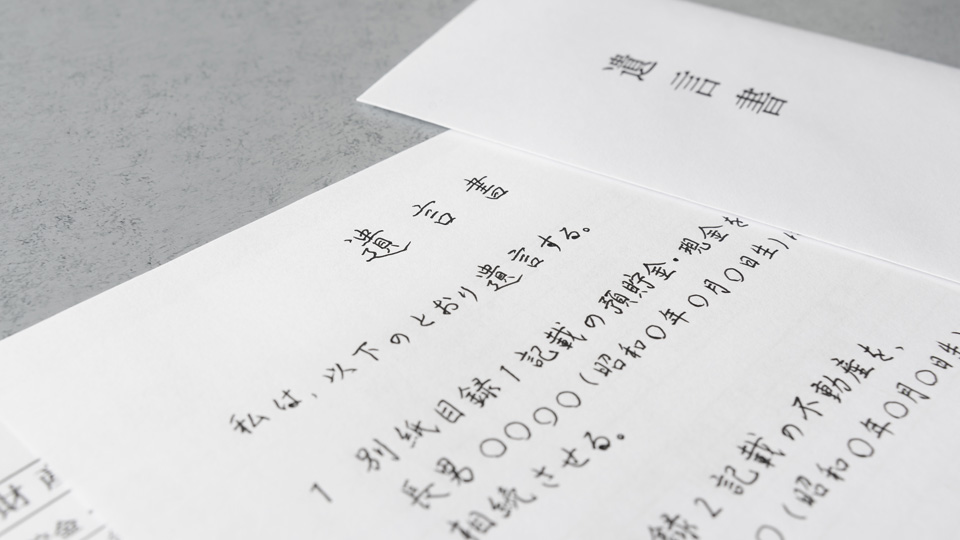 遺言書
遺言書
私は、以下のとおり遺言する。
1 別紙目録1記載の預貯金・現金を
長男 〇〇〇〇(昭和〇年〇月〇日生)に
相続させる。
録2記載の不動産を、
〇(昭和〇年〇月〇日生)
財
金